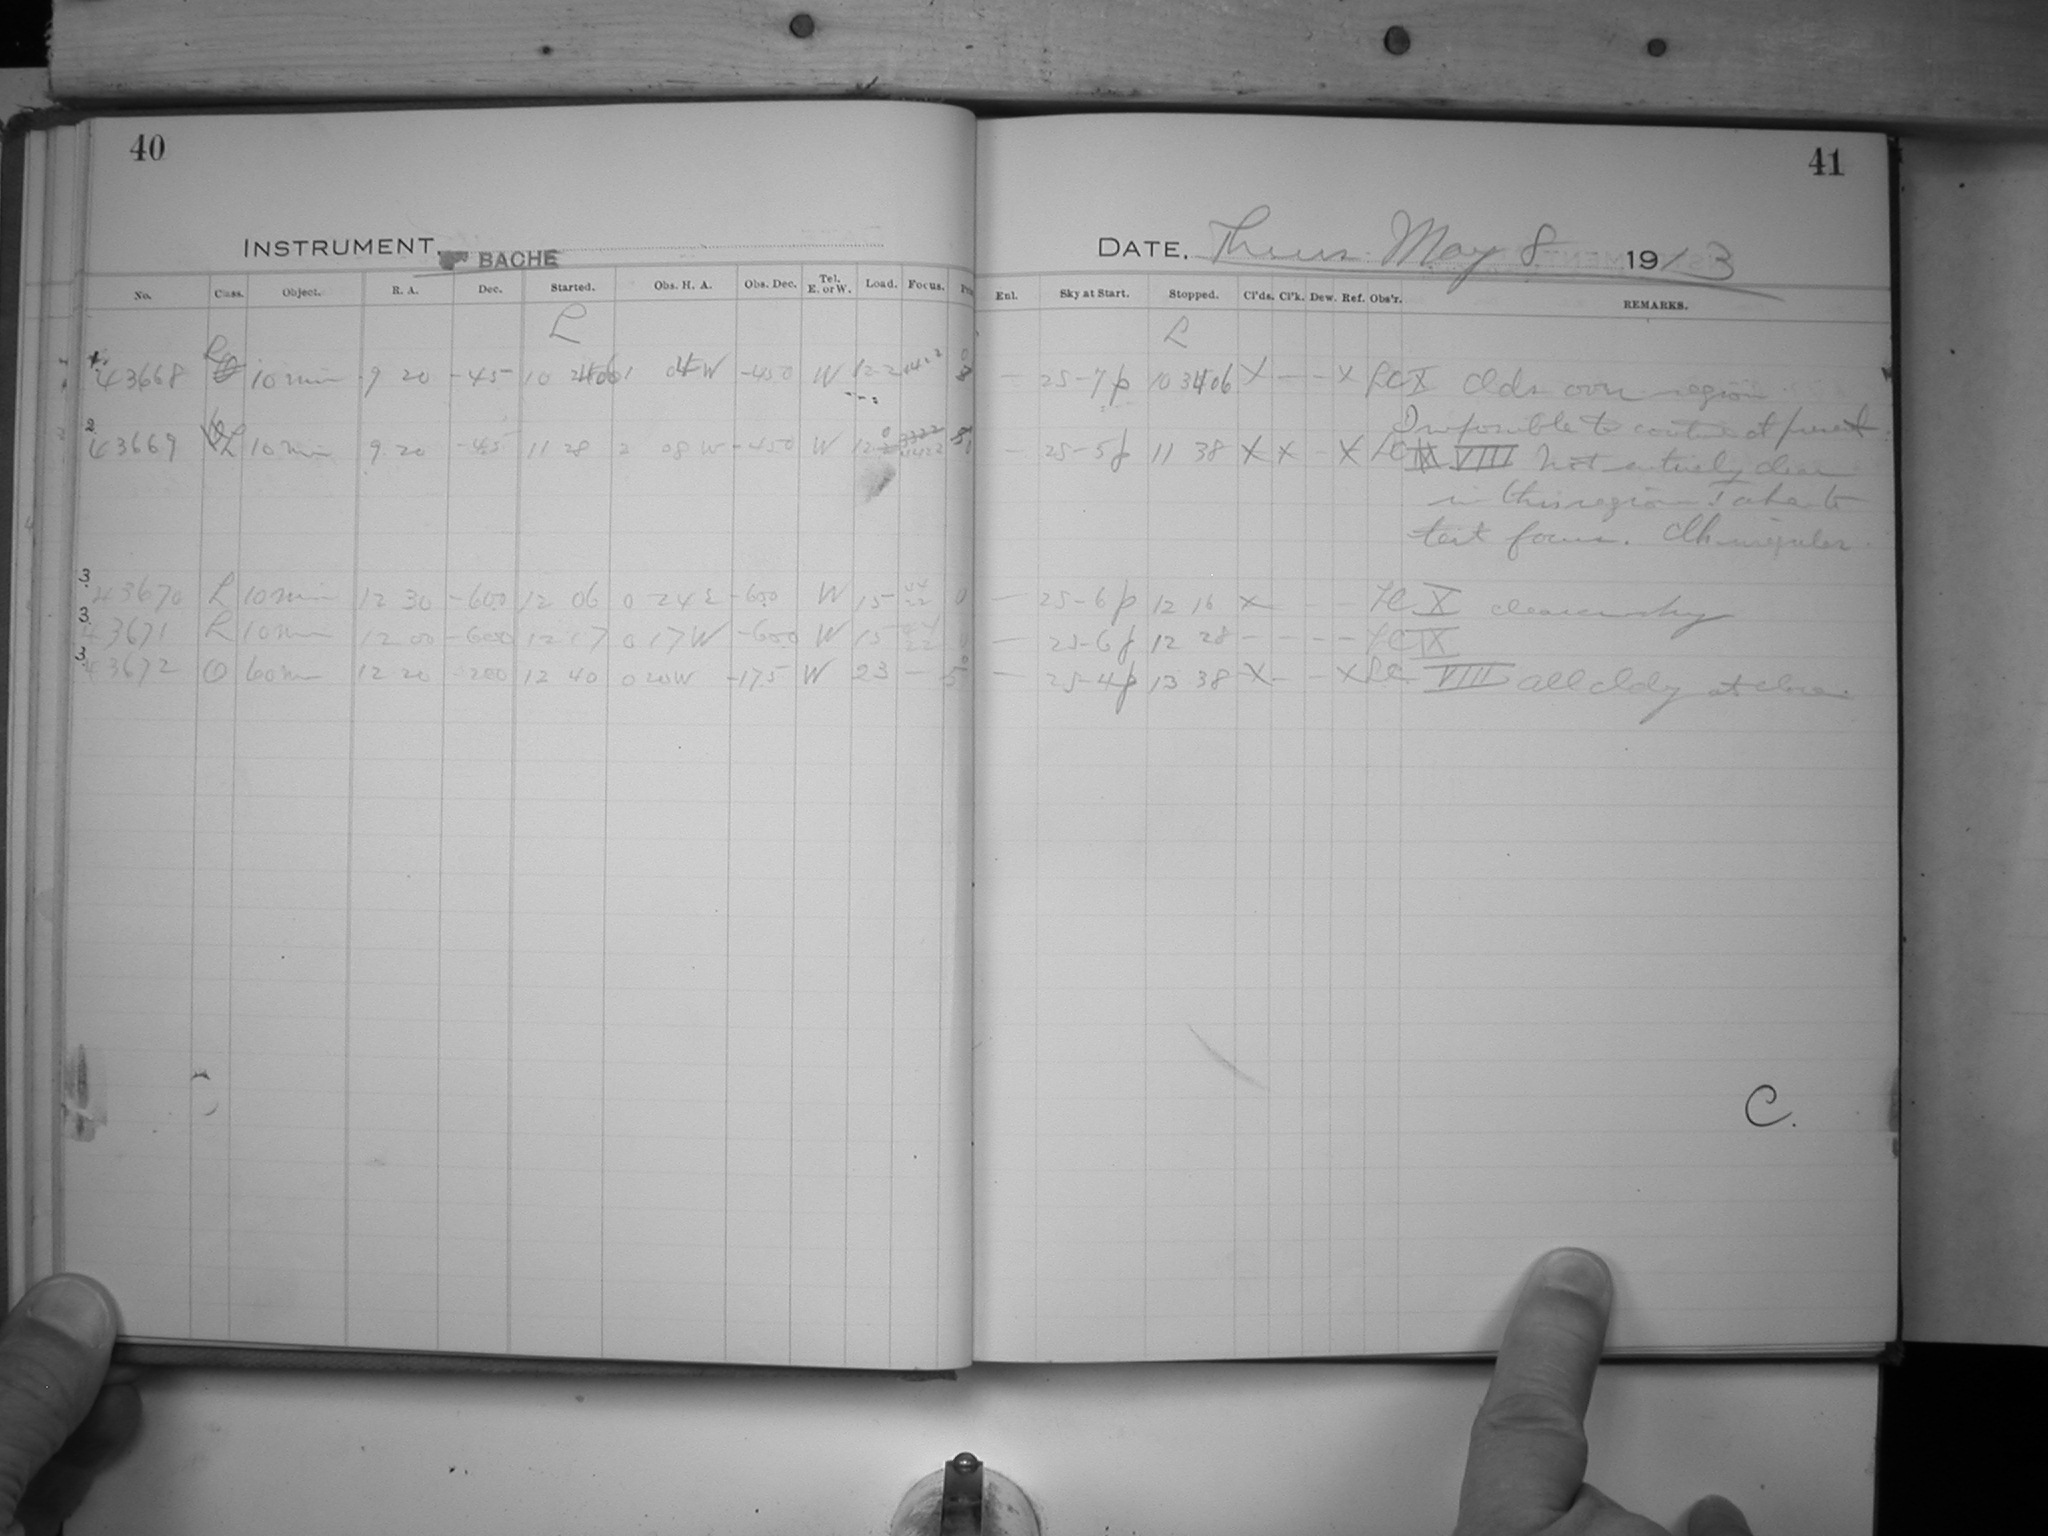 40
INSTRUMENT. BACHE
No. Class. Object. R. A. Dec. Started. Obs. H. A. Obs. Dec. Tel. E. or W. Load. Focus.
L
43668 10 min 9 20 -45 10 04 W -450 W 12-2
43669 L 10 min 9 20 -45 11 28 2 08 W -450 W
43670 L 10 min 12 30 -600 12 06 0 24 E -600 W 15 0
43671 L 10 min 12 00 -600 12 17 0 17 W -600 W 15 0
43672 60 m 12 20 -200 12 40 0 20 W -17.5 W 23 — 5
41
DATE. Thurs. May 8 1913
Enl. Sky at Start. Stopped. Cl'ds. Cl'k. Dew. Ref. Obs'r. REMARKS.
L
— 25-7p 10 34 06 X — - X LC X Clds over region.
Impossible to continue at present.
— 25-5p 11 38 X X - X LC VIII Not entirely clear
in this region. Taken to
test focus. Clk irregular.
— 25-6p 12 16 X - - - LC X
— 25-6p 12 28 - - - - LC IX
— 25-4p 13 38 X - - X LC VIII all cldy at close.
C.